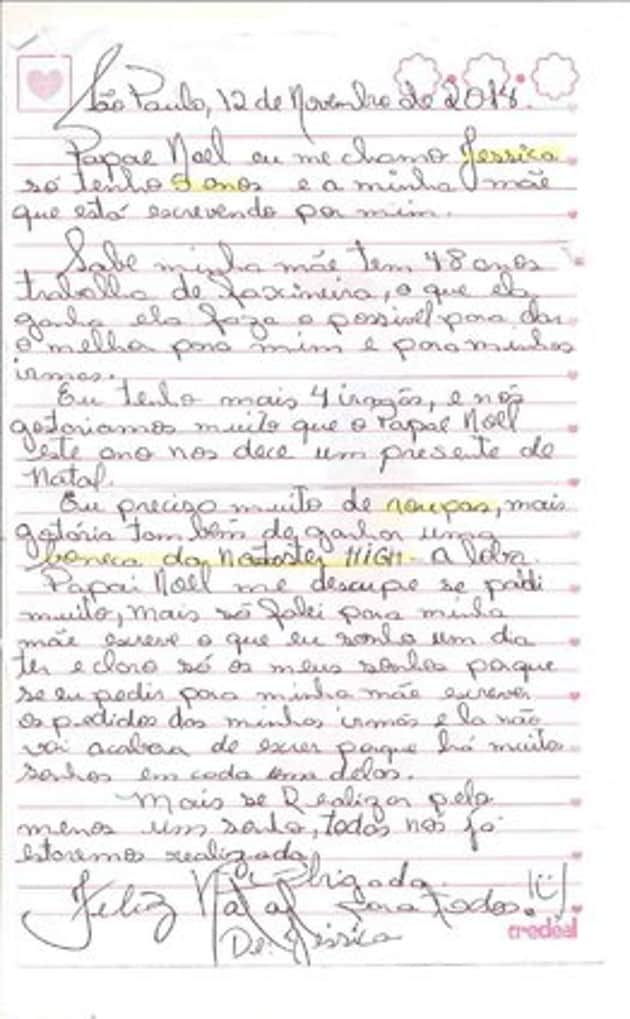 São Paulo, 12 de Novembro de 2014.
Papae Noel eu me chamo Jessica
só tenho 5 anos e a minha mãe
que está escrevendo por mim.
Sabe minha mãe tem 48 anos
trabalha de faxineira, o que ela
ganha ela faza o possivel para dar
o melhor para mim e para minhas
irmas.
Eu tenho mais 4 irmãs, e nós
gostoriamos muito que o Papae Noel
este ano nos dece um presente de
Natal.
Eu precizo muito de roupas, mais
gotória tombém de ganhar uma
boneca da HIGH - a loba.
Papai Noel me descupe se pidi
muito, mais só falei para minha
mãe escreve o que eu sonho um dia
ter e claro só os meus sonhos porque
se eu pedir para minha mãe escrever
os pedidos das minhas irmãs ela não
vai acabar de escrer porque há muitos
sonhos em cada uma delas.
Mais se Realizar pelo
menos um sonho, todas nós já
estaremos realizada
Obrigada.
Feliz Natal para todos!
De: Jéssica
credeal